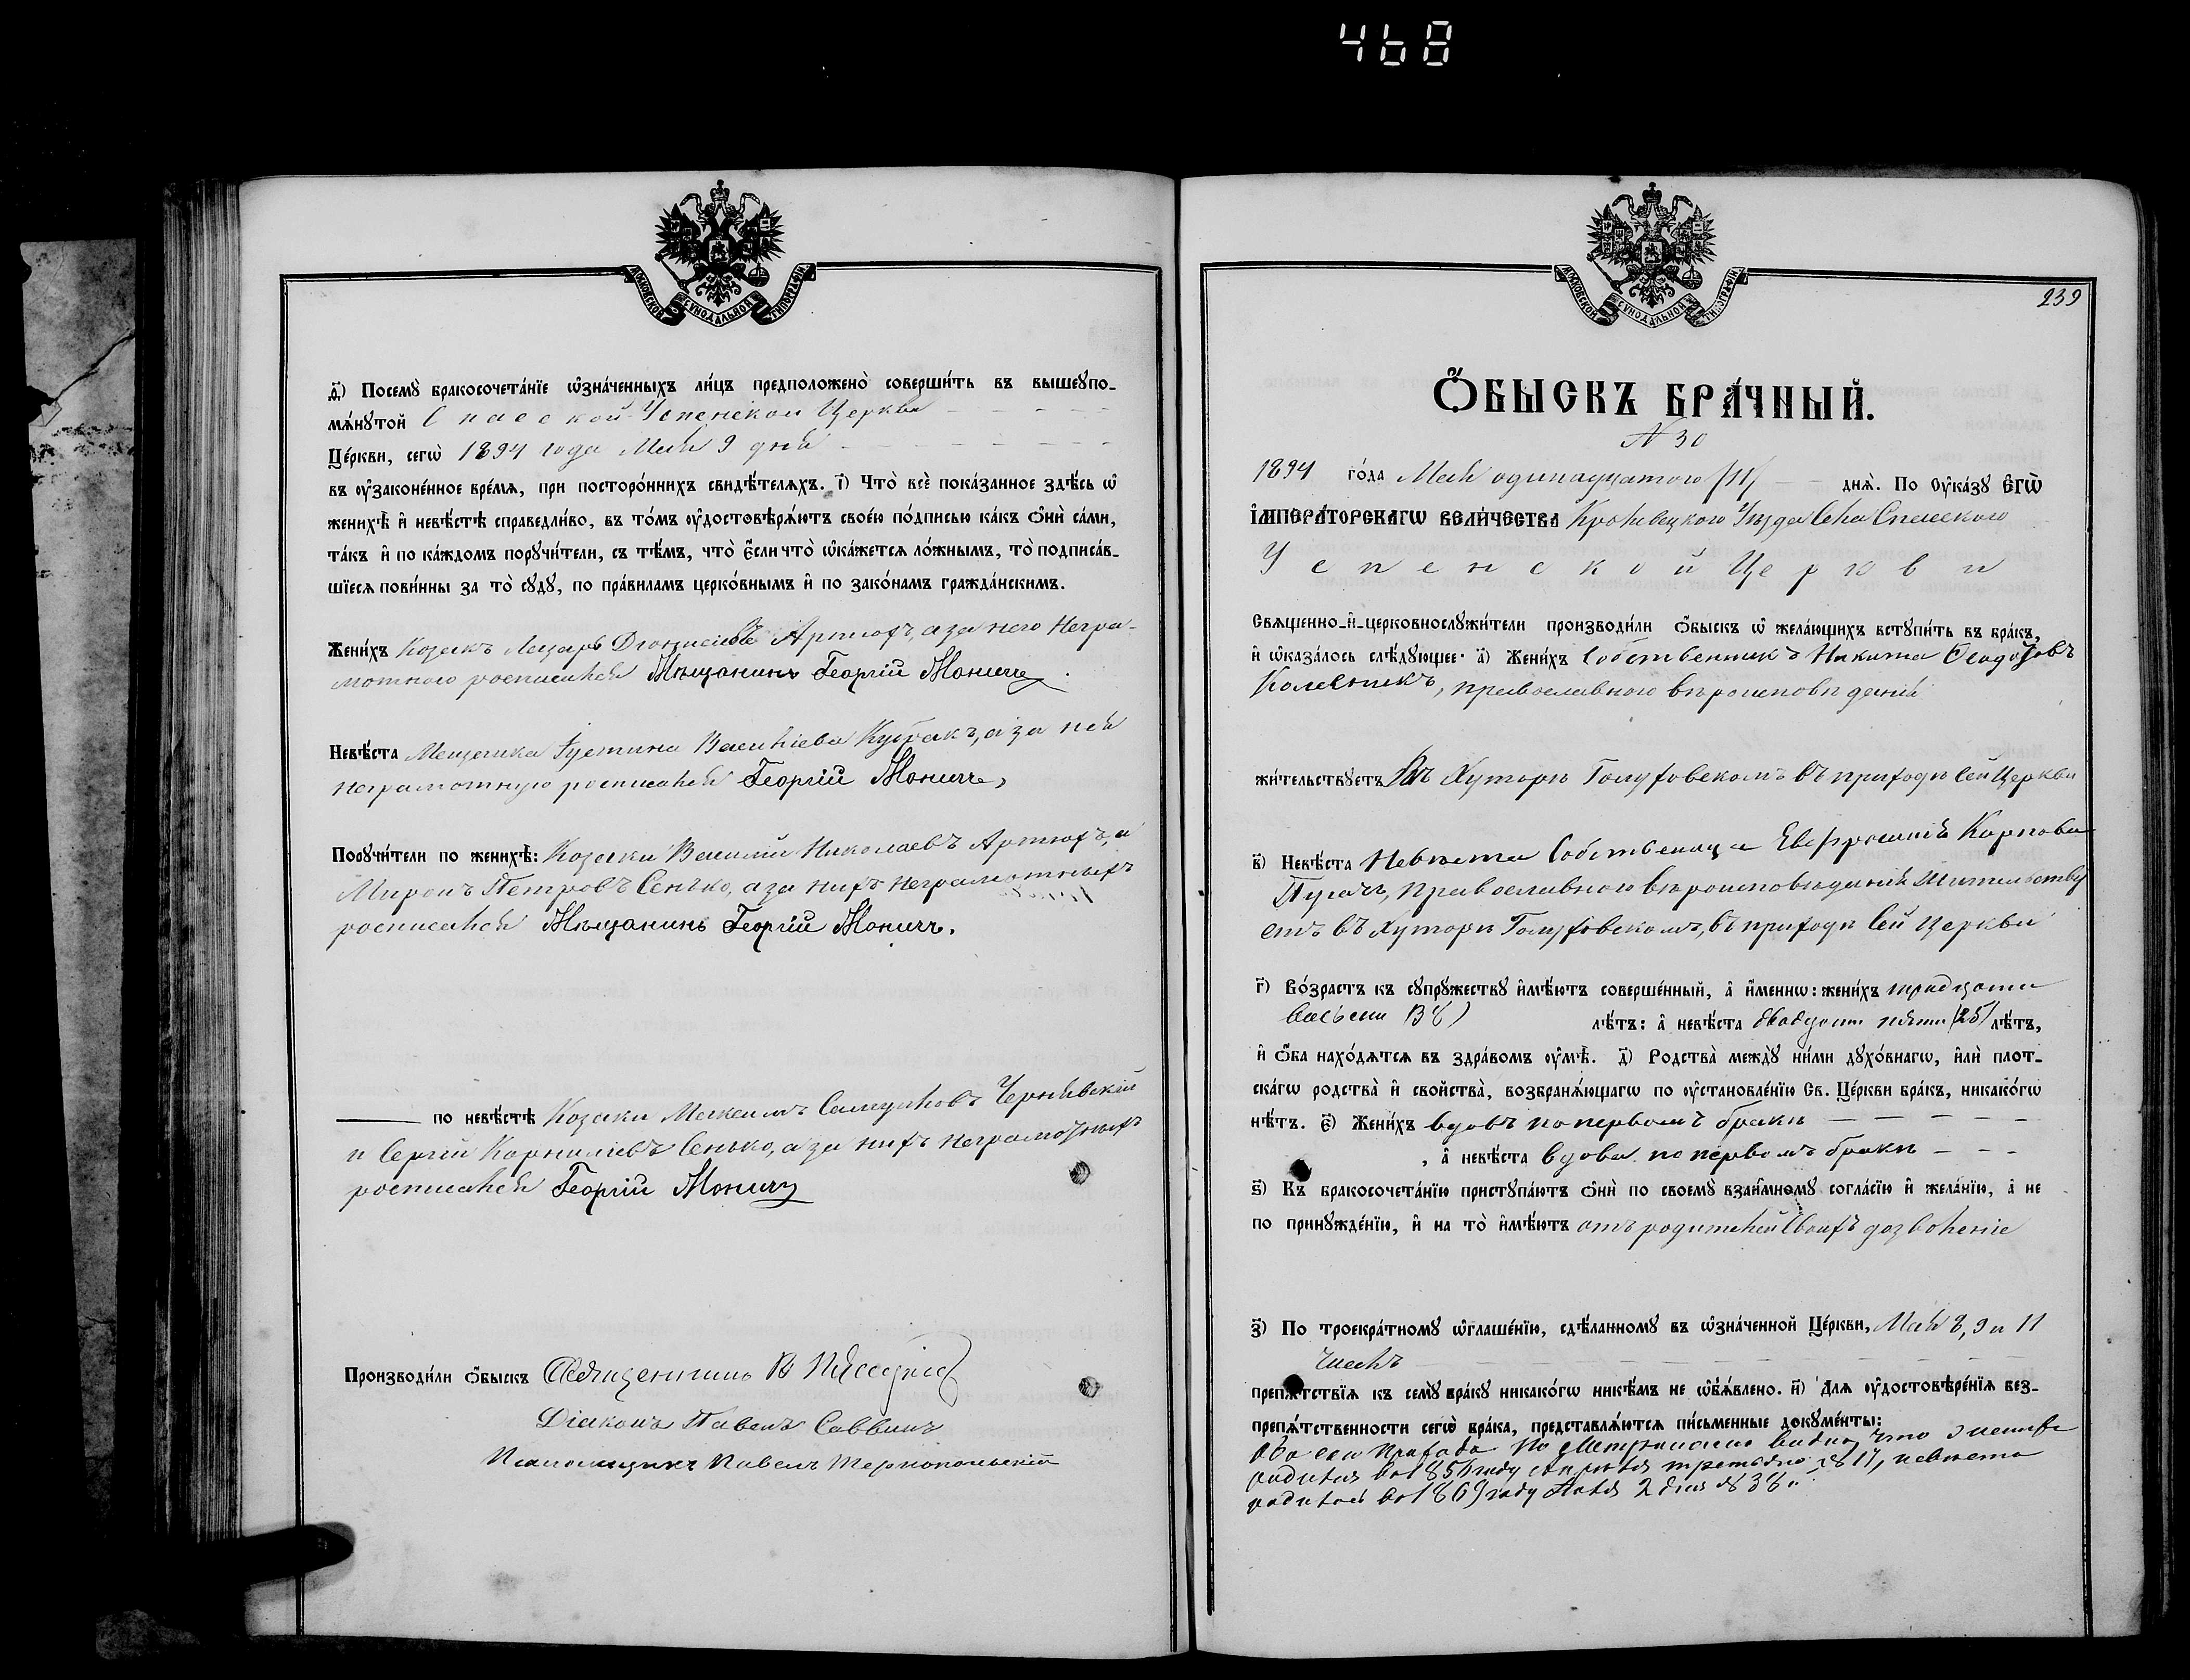 468
МОСКОВСКОЙ СѴНОДАЛЬНОЙ ТИПОГРАФІИ
д҃і) Посемꙋ̀ бракосочета́нїе ѡ҆зна́ченныхъ ли́цъ предположено̀ соверши́ть въ вышеꙋпо-
мѧ́нꙋтой Спасской Успенской Церкви
Це́ркви, сегѡ̀ 1894 года Мая 9 дня
въ ᲂу҆законе́нное вре́мѧ, при посторо́ннихъ свидѣ́телѧхъ. і҃) Что̀ всѐ пока́занное здѣ́сь ѡ҆
женихѣ̀ и҆ невѣ́стѣ справедли́во, въ то́мъ ᲂу҆достовѣрѧ́ютъ свое́ю по́дписью ка́къ ѻ҆нѝ са́ми,
та́къ и҆ по ка́ждомъ порꙋчи́тели, съ тѣ́мъ, что̀ є҆́сли что̀ ѡ҆ка́жетсѧ ло́жнымъ, то̀ подписа́в-
шїесѧ пови́нны за то̀ сꙋдꙋ̀, по пра́виламъ церко́внымъ и҆ по зако́намъ гражда́нскимъ.
Жени́хъ Козакъ Лазарь Діонисіевъ Артюхъ, а за него негра-
мотного росписался Мѣщанинъ Георгій Моничъ
Невѣ́ста Мещанка Іустина Василіева Кубракъ, а за ней
неграмотную росписался Георгій Моничъ,
Порꙋчи́тели по женихѣ̀: Козаки Василий Николаевъ Артюхъ, и
Миронъ Петровъ Сенько, а за нихъ неграмотныхъ
росписался Мѣщанинъ Георгій Моничъ.
по невѣ́стѣ Козаки Максимъ Самуиловъ Чернявскій
и Сергій Корниліевъ Сенько, а за нихъ неграмотныхъ
росписался Георгій Моничъ
Производи́ли ѻ҆́быскъ Священникъ В
Діаконъ Павелъ Саввинъ
Псаломщикъ Павелъ Тернопольскій
МОСКОВСКОЙ СѴНОДАЛЬНОЙ ТИПОГРАФІИ
239
Ѻ҆́БЫСКЪ БРА́ЧНЫЙ.
N 30
1894 го́да Мая одинадцатого /11/ днѧ̀. По Оу҆ка́зꙋ Є҆гѡ̀
І҆мпера́торскагѡ Вели́чества Кролевецкого Уѣзда Села Спасского
Успенской Церкви
Свѧще́нно-и҆-церковнослꙋжи́тели производи́ли ѻ҆́быскъ ѡ҆ жела́ющихъ встꙋпи́ть въ бра́къ,
и҆ ѡ҆каза́лось слѣ́дꙋющее: а҃) Жени́хъ Собственникъ Никита Феодоровъ
Колесникъ, православного вѣроисповѣданія
жи́тельствꙋетъ Въ Хуторѣ Голуховскомъ въ приходѣ сей Церкви
в҃) Невѣ́ста Невѣста Собственица Евфросинія Карпова
Пугачъ, православного вѣроисповѣданія жительству
етъ въ Хуторѣ Голуховскомъ, въ приходѣ сей Церкви
г҃) Во́зрастъ къ сꙋпрꙋ́жествꙋ и҆мѣ́ютъ соверше́нный, а҆ и҆́меннѡ: жени́хъ тридцати
восьми 38)
лѣ́тъ: а҆ невѣ́ста двадцати пяти (25) лѣ́тъ,
и҆ ѻ҆́ба нахо́дѧтсѧ въ здра́вомъ ᲂу҆мѣ̀. д҃) Родства̀ междꙋ̀ ни́ми дꙋхо́внагѡ, и҆лѝ плот-
ска́гѡ родства̀ и҆ свойства̀, возбранѧ́ющагѡ по ᲂу҆становле́нїю Св. Це́ркви бра́къ, никако́гѡ
нѣ́тъ. є҃) Жени́хъ вдовъ по первомъ бракѣ
, а҆ невѣ́ста вдова по первомъ бракѣ
ѕ҃) Къ бракосочета́нїю пристꙋпа́ютъ ѻ҆нѝ по своемꙋ̀ взаи́мномꙋ согла́сїю и҆ жела́нїю, а҆ не
по принꙋжде́нїю, и҆ на то̀ и҆мѣ́ютъ отъ родителей своихъ дозволеніе
з҃) По троекра́тномꙋ ѡ҆глаше́нїю, сдѣ́ланномꙋ въ ѡ҆зна́ченной Це́ркви, Мая 8, 9 и 11
числъ
препѧ́тствїѧ къ семꙋ̀ бра́кꙋ никако́гѡ никѣ́мъ не ѡ҆б̾ѧ́влено. и҃) Для ᲂу҆достовѣре́нїѧ без-
препѧ́тственности сегѡ̀ бра́ка, представлѧ́ютсѧ пи́сьменные докꙋме́нты:
Оба сего прихода По Метрикамъ видно, что женихъ
родился въ 1856 году апрѣля третьяго № 17, невѣста
родилась въ 1869 году 2 дня № 38.